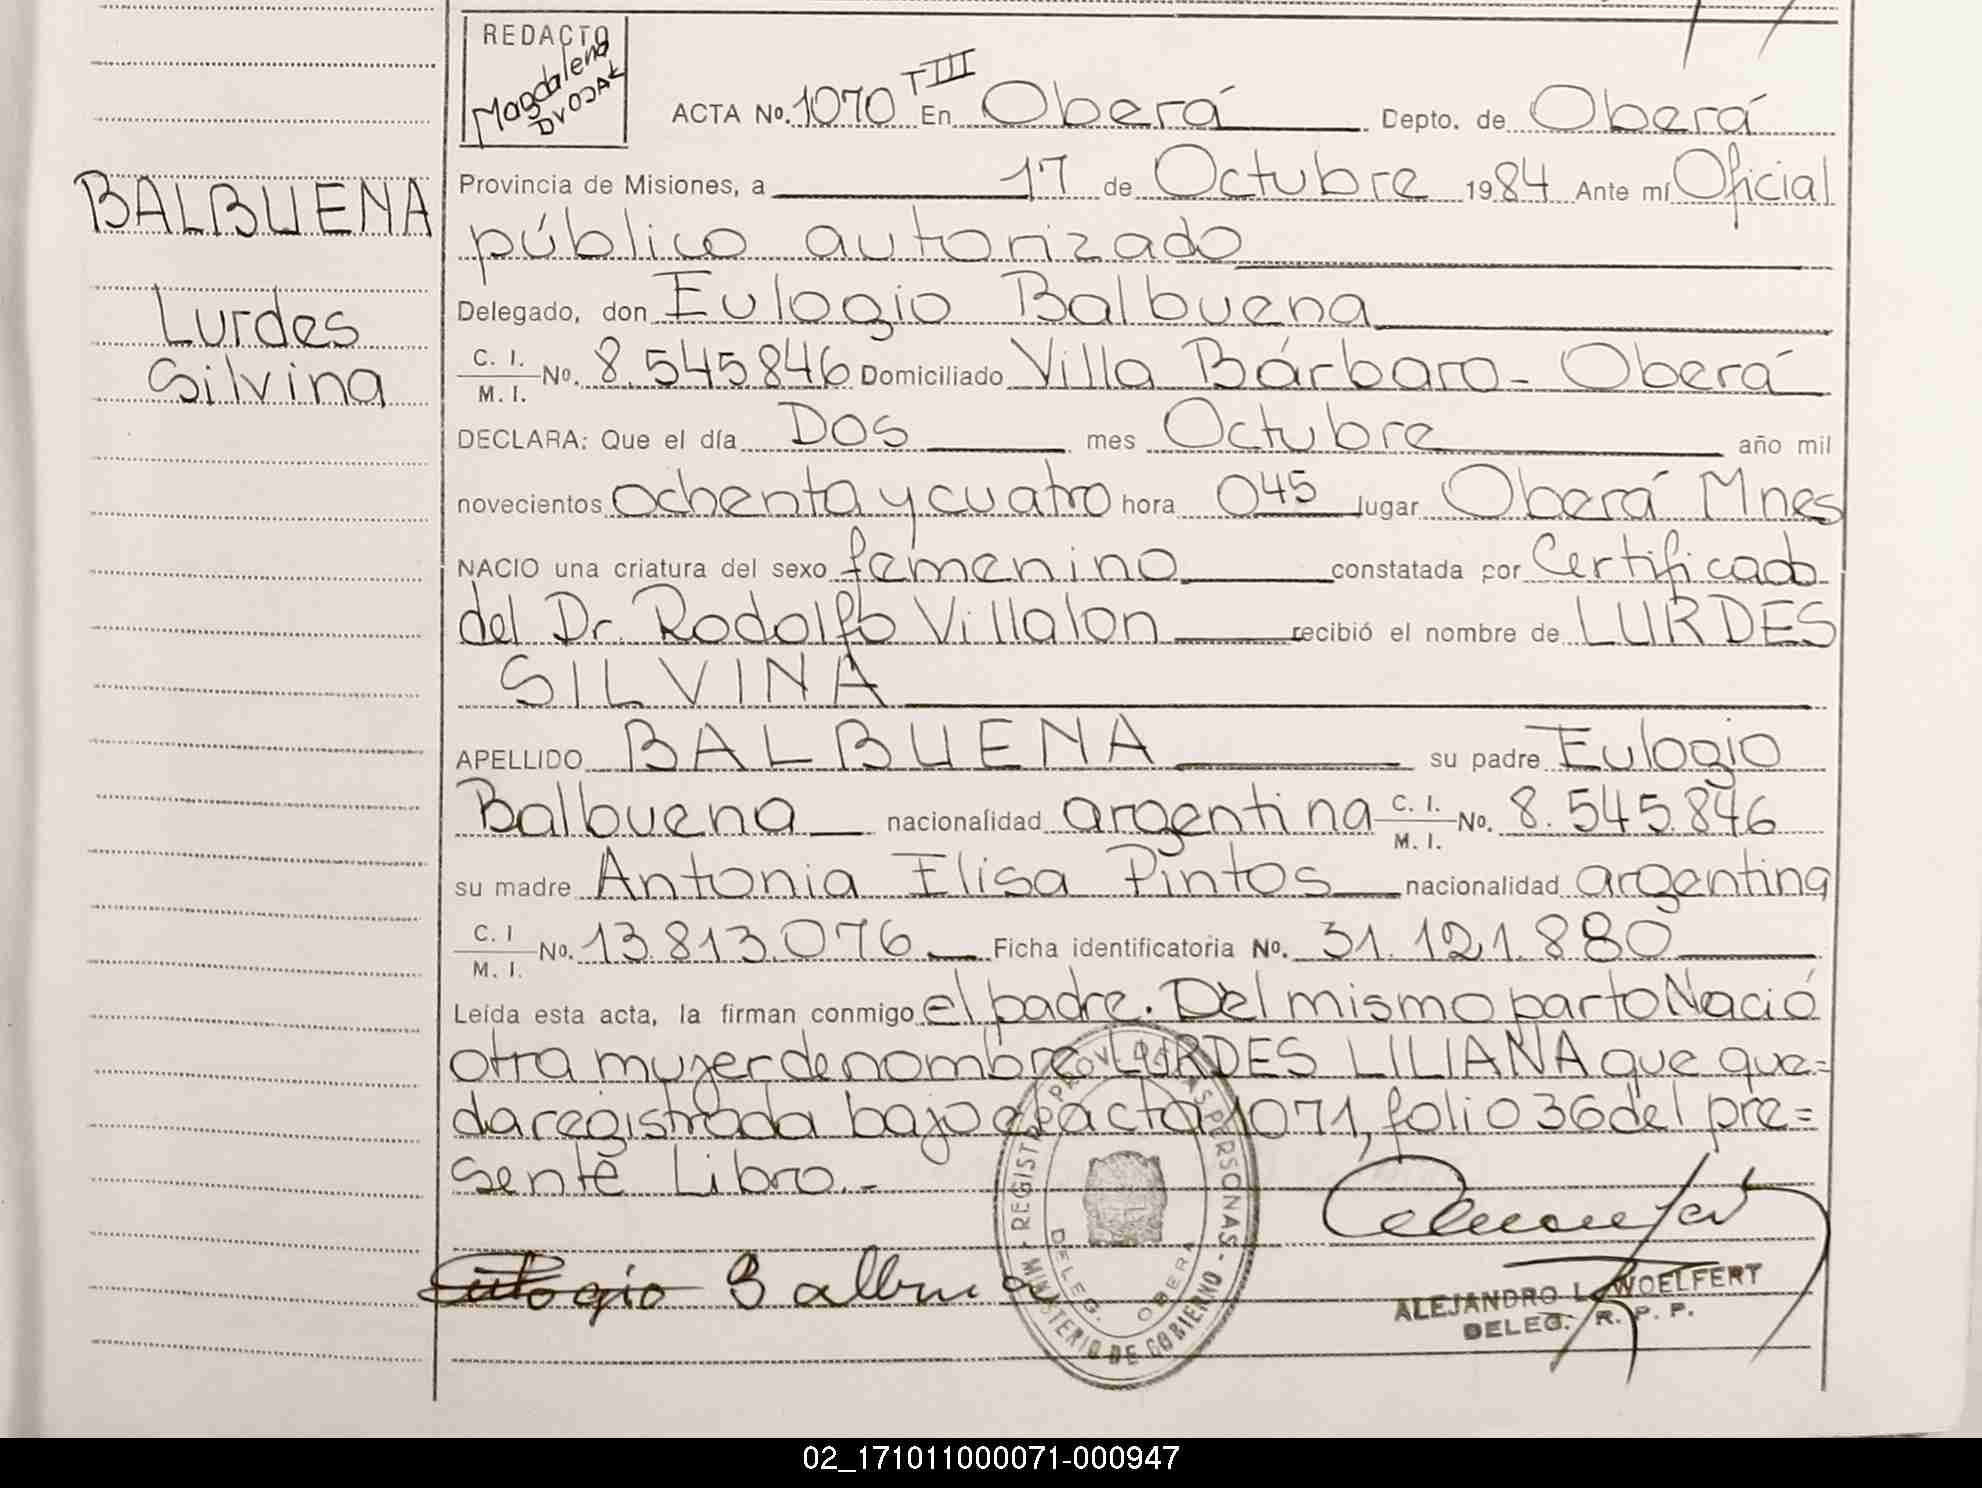 REDACTO
Magdalena
DVOJAK
ACTA No. 1070 TIII En Oberá Depto. de Oberá
Provincia de Misiones, a 17 de Octubre 1984 Ante mí Oficial
público autorizado
Delegado, don Eulogio Balbuena
C. I. / M. I. No. 8.545846 Domiciliado Villa Bárbaro - Oberá
DECLARA: Que el día Dos mes Octubre año mil
novecientos ochenta y cuatro hora 045 lugar Oberá Mnes
NACIO una criatura del sexo femenino constatada por Certificado
del Dr. Rodolfo Villalon recibió el nombre de LURDES
SILVINA
APELLIDO BALBUENA su padre Eulogio
Balbuena nacionalidad argentina C. I. / M. I. No. 8.545.846
su madre Antonia Elisa Pintos nacionalidad argentina
C. I / M. I. No. 13.813.076 Ficha identificatoria No. 31.121.880
Leída esta acta, la firman conmigo el padre. Del mismo parto Nació
otra mujer de nombre LURDES LILIANA que que=
da registrada bajo el acta 1071, folio 036 del pre=
sente Libro.-
BALBUENA
Lurdes
Silvina
Eulogio Balbuena
REGISTR PROV. DE LAS PERSONAS - MINISTERIO DE GOBIERNO -
DELEG. OBERA
ALEJANDRO L. WOELFERT
DELEG. R. P. P.
02_171011000071-000947